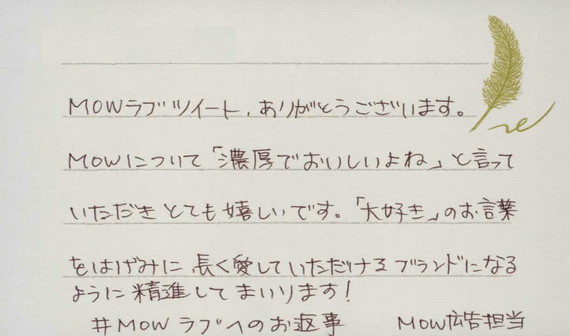 MOWラブツイート、ありがとうございます。
MOWについて「濃厚でおいしいよね」と言って
いただきとても嬉しいです。「大好き」のお言葉
をはげみに長く愛していただけるブランドになる
ように精進してまいります!
#MOWラブへのお返事 MOW広告担当